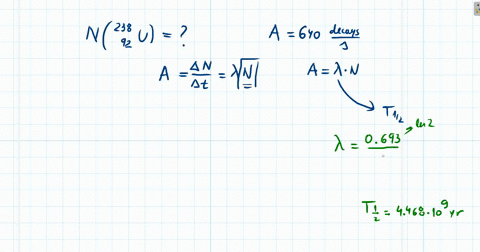 N(²³⁸₉₂U) = ?
A = 640 decays/s
A = ΔN/Δt = λN
A = λ·N
T₁/₂
ln2
λ = 0.693
T₁/₂ = 4.468·10⁹ yr